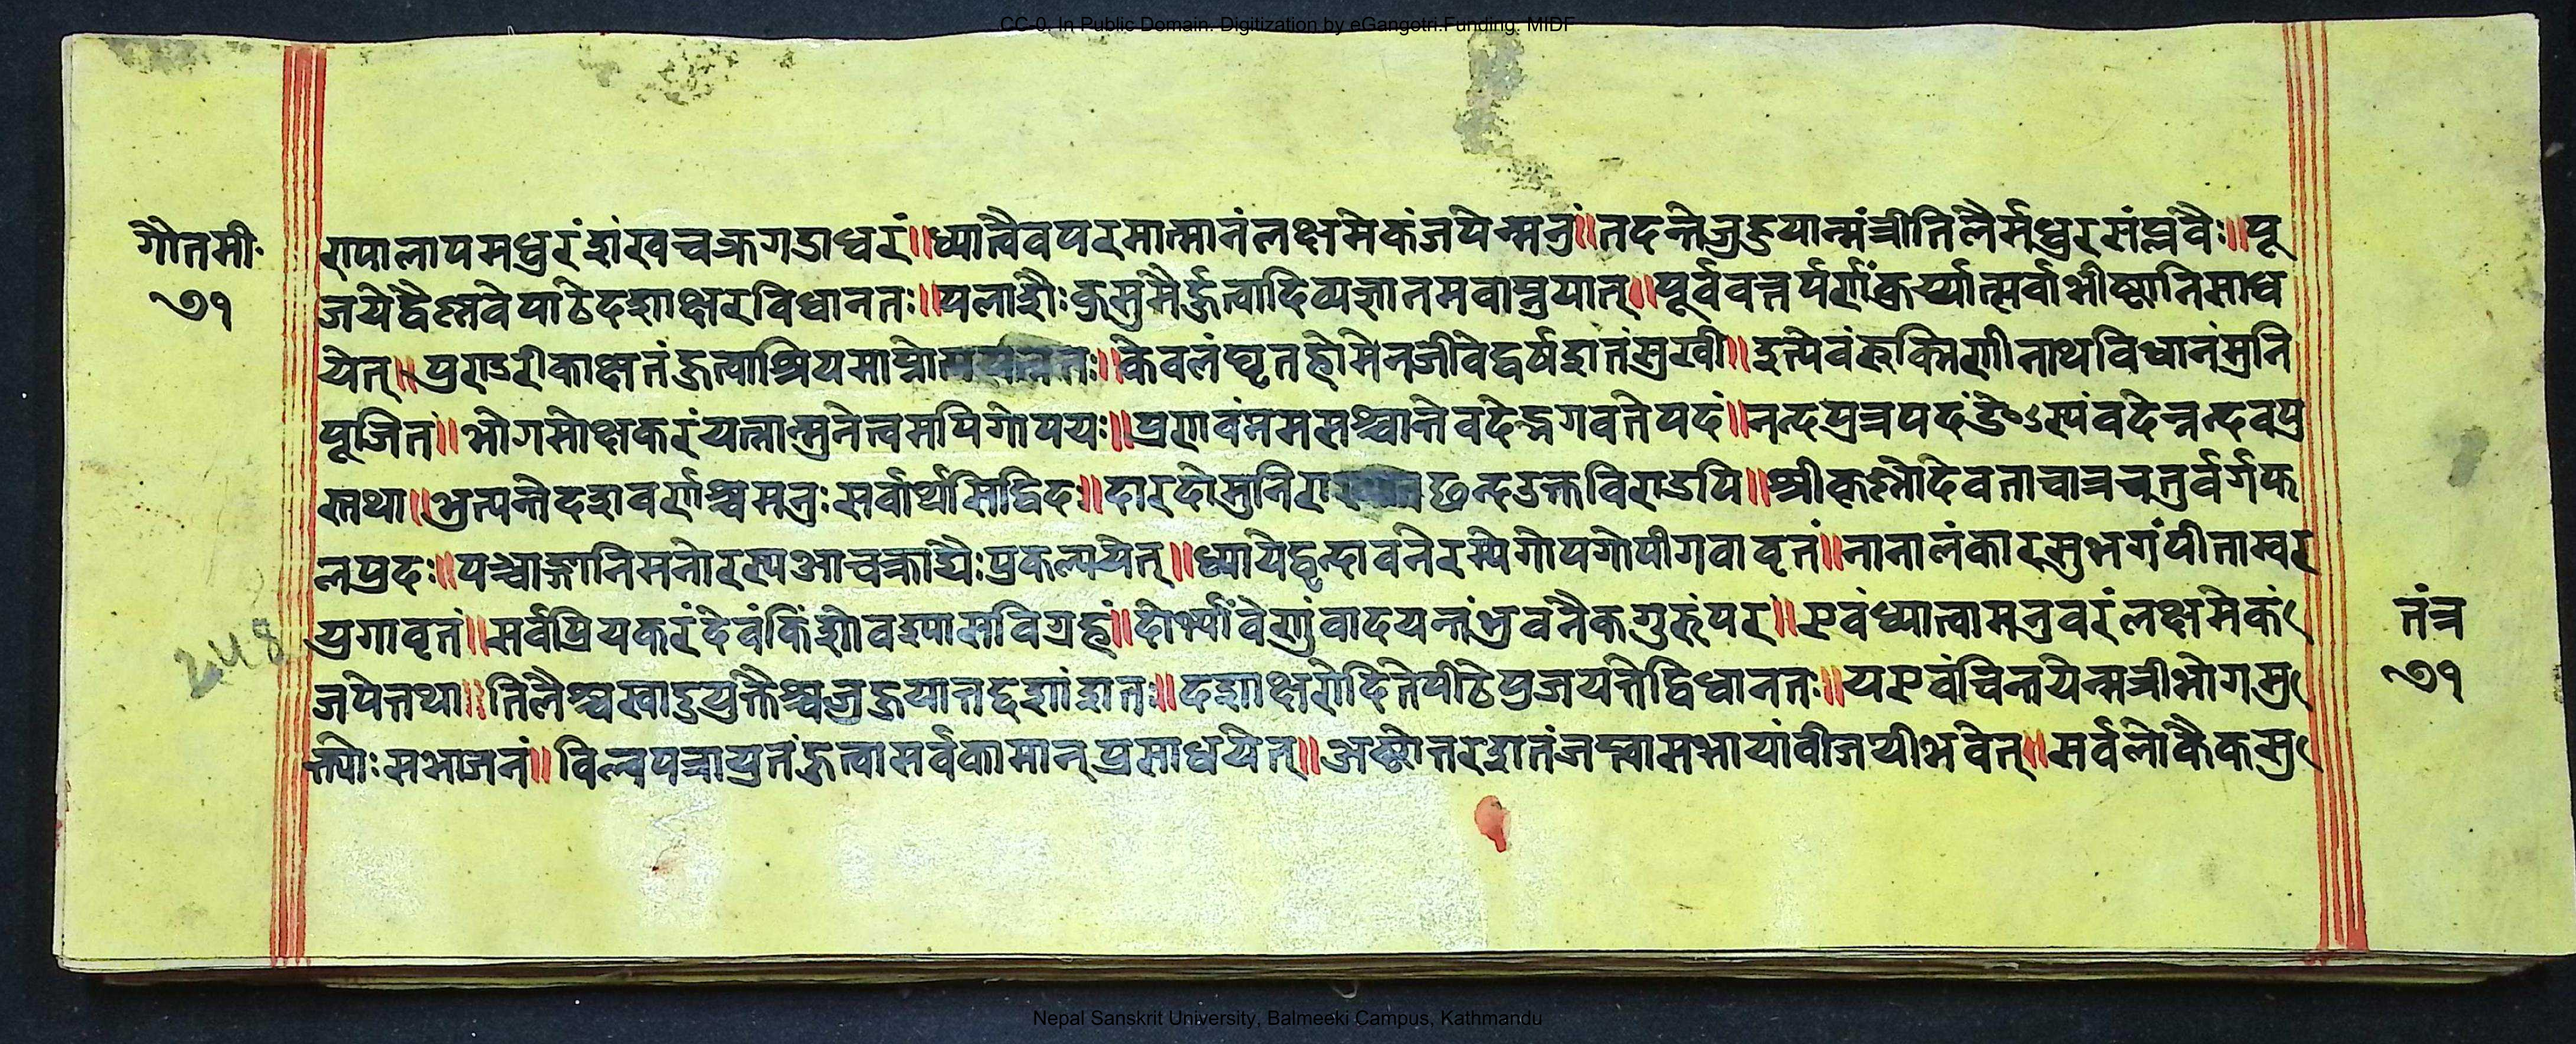 CC-0. In Public Domain. Digitization by eGangotri.Funding. MIDF
गौतमी॰
७१
रापालापमधुरं शंखचक्रगदाधरं॥ध्यात्वैवपरमात्मानंलक्षमेकंजपेन्मनुं॥तदन्तेजुहुयान्मंत्रीतिलैर्मधुरसंप्लवैः॥पू
जयेद्वैष्णवेपाठेदशाक्षरविधानतः॥पलाशैःकुसुमैर्हुत्वादिव्यज्ञानमवाप्नुयात्॥पूर्ववत्तर्पणंकुर्य्यात्सर्वाभीष्टानिसाध
येत्॥पुराडरीकाक्षतंहुत्वाश्रियमाप्नो तः॥केवलंघृतहोमेनजीवेद्वर्षशतंसुखी॥इत्येवंरुक्मिणीनाथविधानंमुनि
पूजितं॥भोगमोक्षकरंयत्नात्मुनेत्वमपिगोपयः॥प्रणवंनमसश्चान्तेवदेद्भगवतेपदं॥नन्दपुत्रपदंङेऽस्यंवदेन्नन्दवपु
स्तथा॥भुत्यन्तेदशवर्णाश्चमनुः सर्वार्थसिद्धिद॥दारदोमुनिरा छन्दउक्तविराडपि॥श्रीकृष्णोदेवताचात्रचतुर्वर्गफ
लप्रदः॥पञ्चाङ्गानिमनोरस्यआचक्राद्यैःप्रकल्पयेत्॥ध्यायेद्वृन्दावनेरम्येगोपगोपीगवावृतं॥नानालंकारसुभगंपीताम्बर
युगावृतं॥सर्वप्रियकरंदेवंकिंशोवश्यामविग्रहं॥दोर्भ्यांवेणुंवादयन्तंभुवनैकगुरुंपर॥एवंध्यात्वामनुवरंलक्षमेकं
जपेत्तथा॥तिलैश्चखादुयुक्तैश्चजुहुयात्तद्दशांशत॥दशाक्षरोदितेपीठेपुजयत्तेद्विधानतः॥यएवंचिन्तयेन्मन्त्रीभोगमु
क्त्योःसभाजनं॥विल्वपत्रायुतंहुत्वासर्वकामान्प्रसाधयेत्॥अष्टोत्तरशतंजप्त्वासभायांवीजयीभवेत्॥सर्वलोकैकसु
तंत्र
७१
Nepal Sanskrit University, Balmeeki Campus, Kathmandu